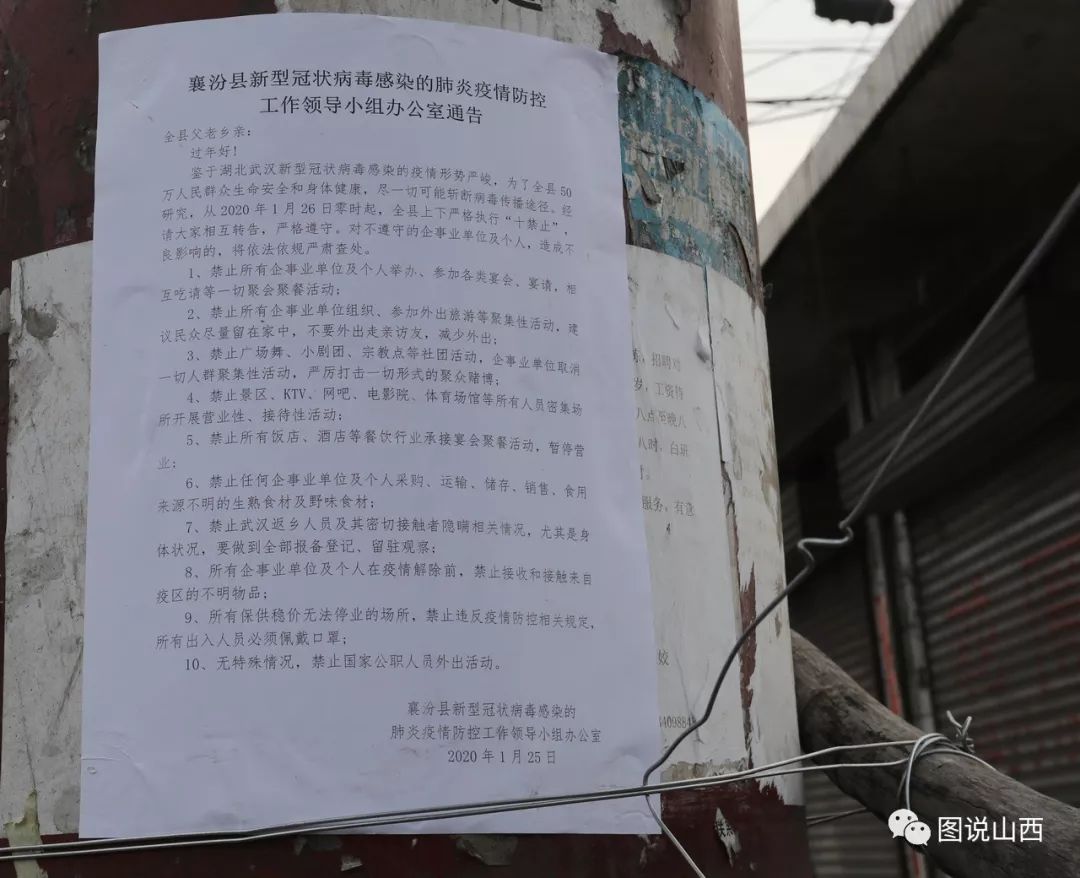 襄汾县新型冠状病毒感染的肺炎疫情防控
工作领导小组办公室通告
全县父老乡亲：
过年好！
鉴于湖北武汉新型冠状病毒感染的疫情形势严峻，为了全县50
万人民群众生命安全和身体健康，尽一切可能斩断病毒传播途径。经
研究，从2020年1月26日零时起，全县上下严格执行“十禁止”，
请大家相互转告，严格遵守。对不遵守的企事业单位及个人，造成不
良影响的，将依法依规严肃查处。
1、禁止所有企事业单位及个人举办、参加各类宴会、宴请，相
互吃请等一切聚会聚餐活动；
2、禁止所有企事业单位组织、参加外出旅游等聚集性活动，建
议民众尽量留在家中，不要外出走亲访友，减少外出；
3、禁止广场舞、小剧团、宗教点等社团活动，企事业单位取消
一切人群聚集性活动，严厉打击一切形式的聚众赌博；
4、禁止景区、KTV、网吧、电影院、体育场馆等所有人员密集场
所开展营业性、接待性活动；
5、禁止所有饭店、酒店等餐饮行业承接宴会聚餐活动，暂停营
业；
6、禁止任何企事业单位及个人采购、运输、储存、销售、食用
来源不明的生熟食材及野味食材；
7、禁止武汉返乡人员及其密切接触者隐瞒相关情况，尤其是身
体状况，要做到全部报备登记、留驻观察；
8、所有企事业单位及个人在疫情解除前，禁止接收和接触来自
疫区的不明物品；
9、所有保供稳价无法停业的场所，禁止违反疫情防控相关规定，
所有出入人员必须佩戴口罩；
10、无特殊情况，禁止国家公职人员外出活动。
襄汾县新型冠状病毒感染的
肺炎疫情防控工作领导小组办公室
2020年1月25日
，招聘对
岁，工资待
八点至晚八
八时，白班
服务，有意
4
姣
409884
图说山西